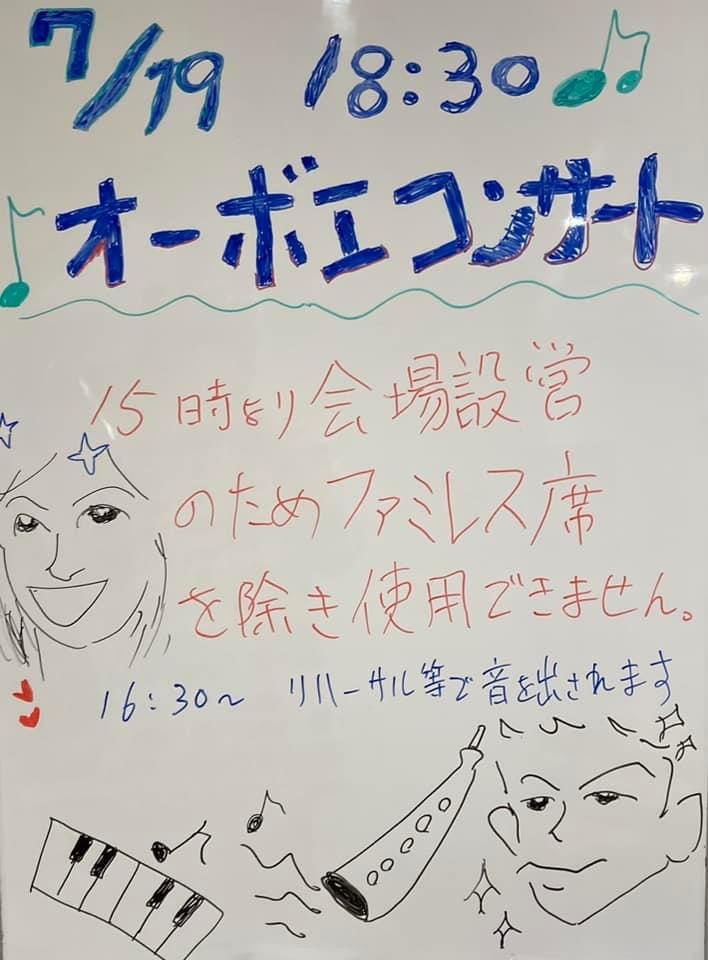 7/19 18:30
オーボエコンサート
15時より会場設営
のためファミレス席
を除き使用できません。
16:30～ リハーサル等で音を出されます